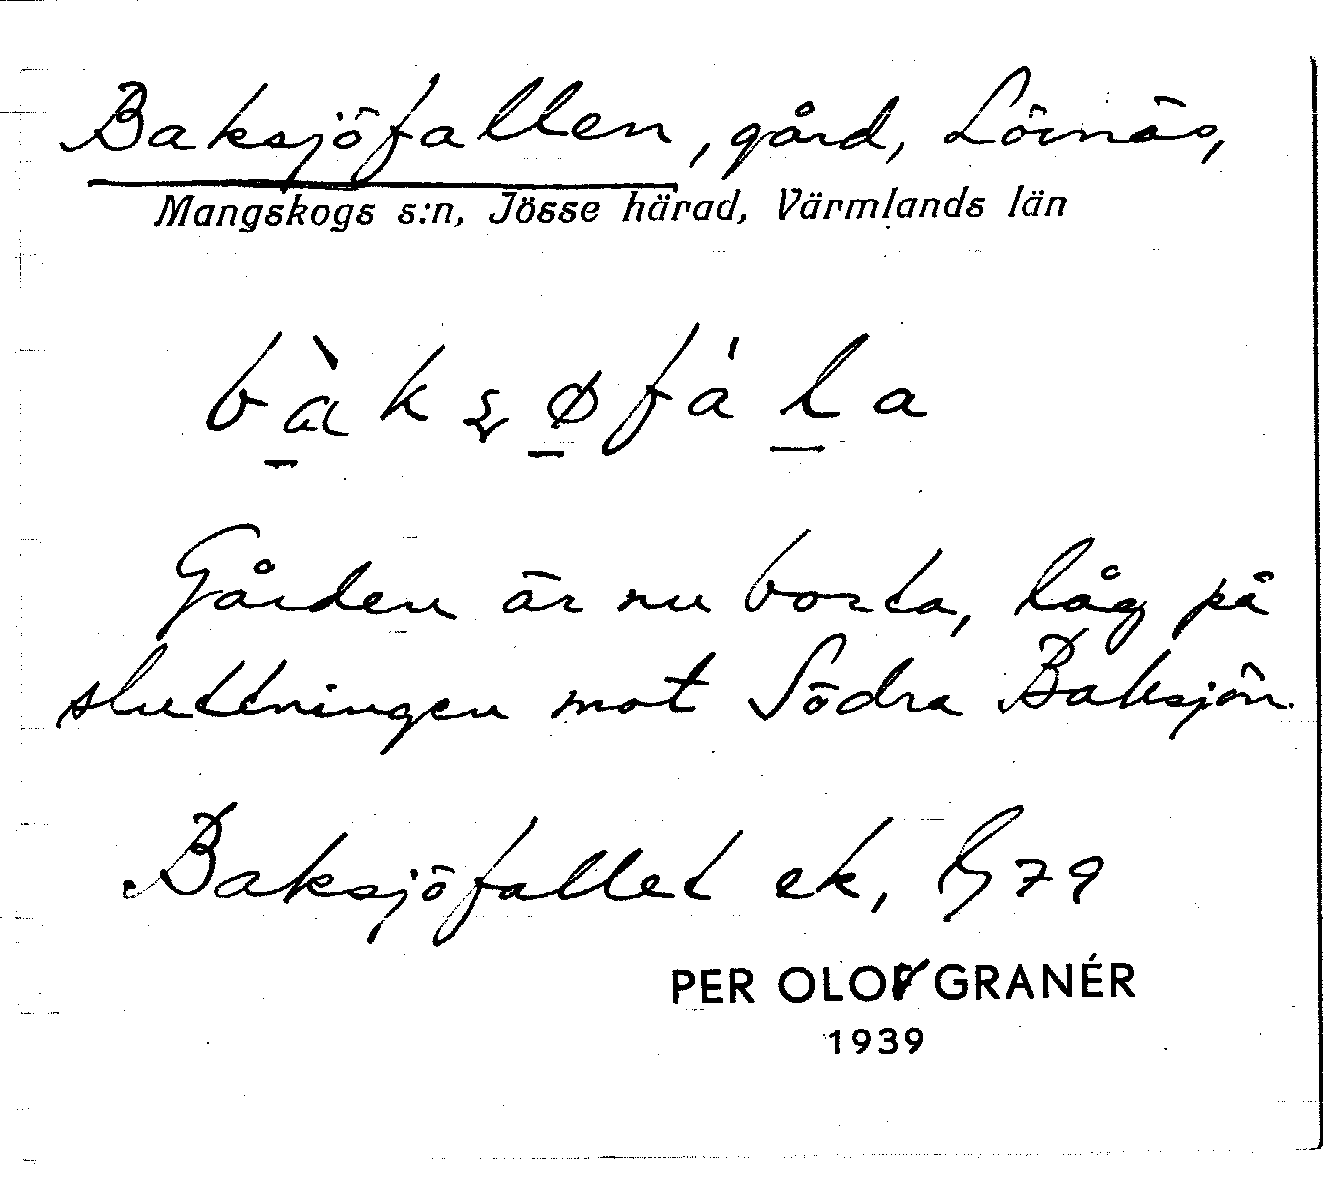 Baksjöfallen, gård, Lövnäs,
Mangskogs s:n, Jösse härad, Värmlands län
Gården är nu borta, låg på
sluttningen mot Södra Baksjön.
Baksjöfallet ek, 79
PER OLOV GRANÉR
1939